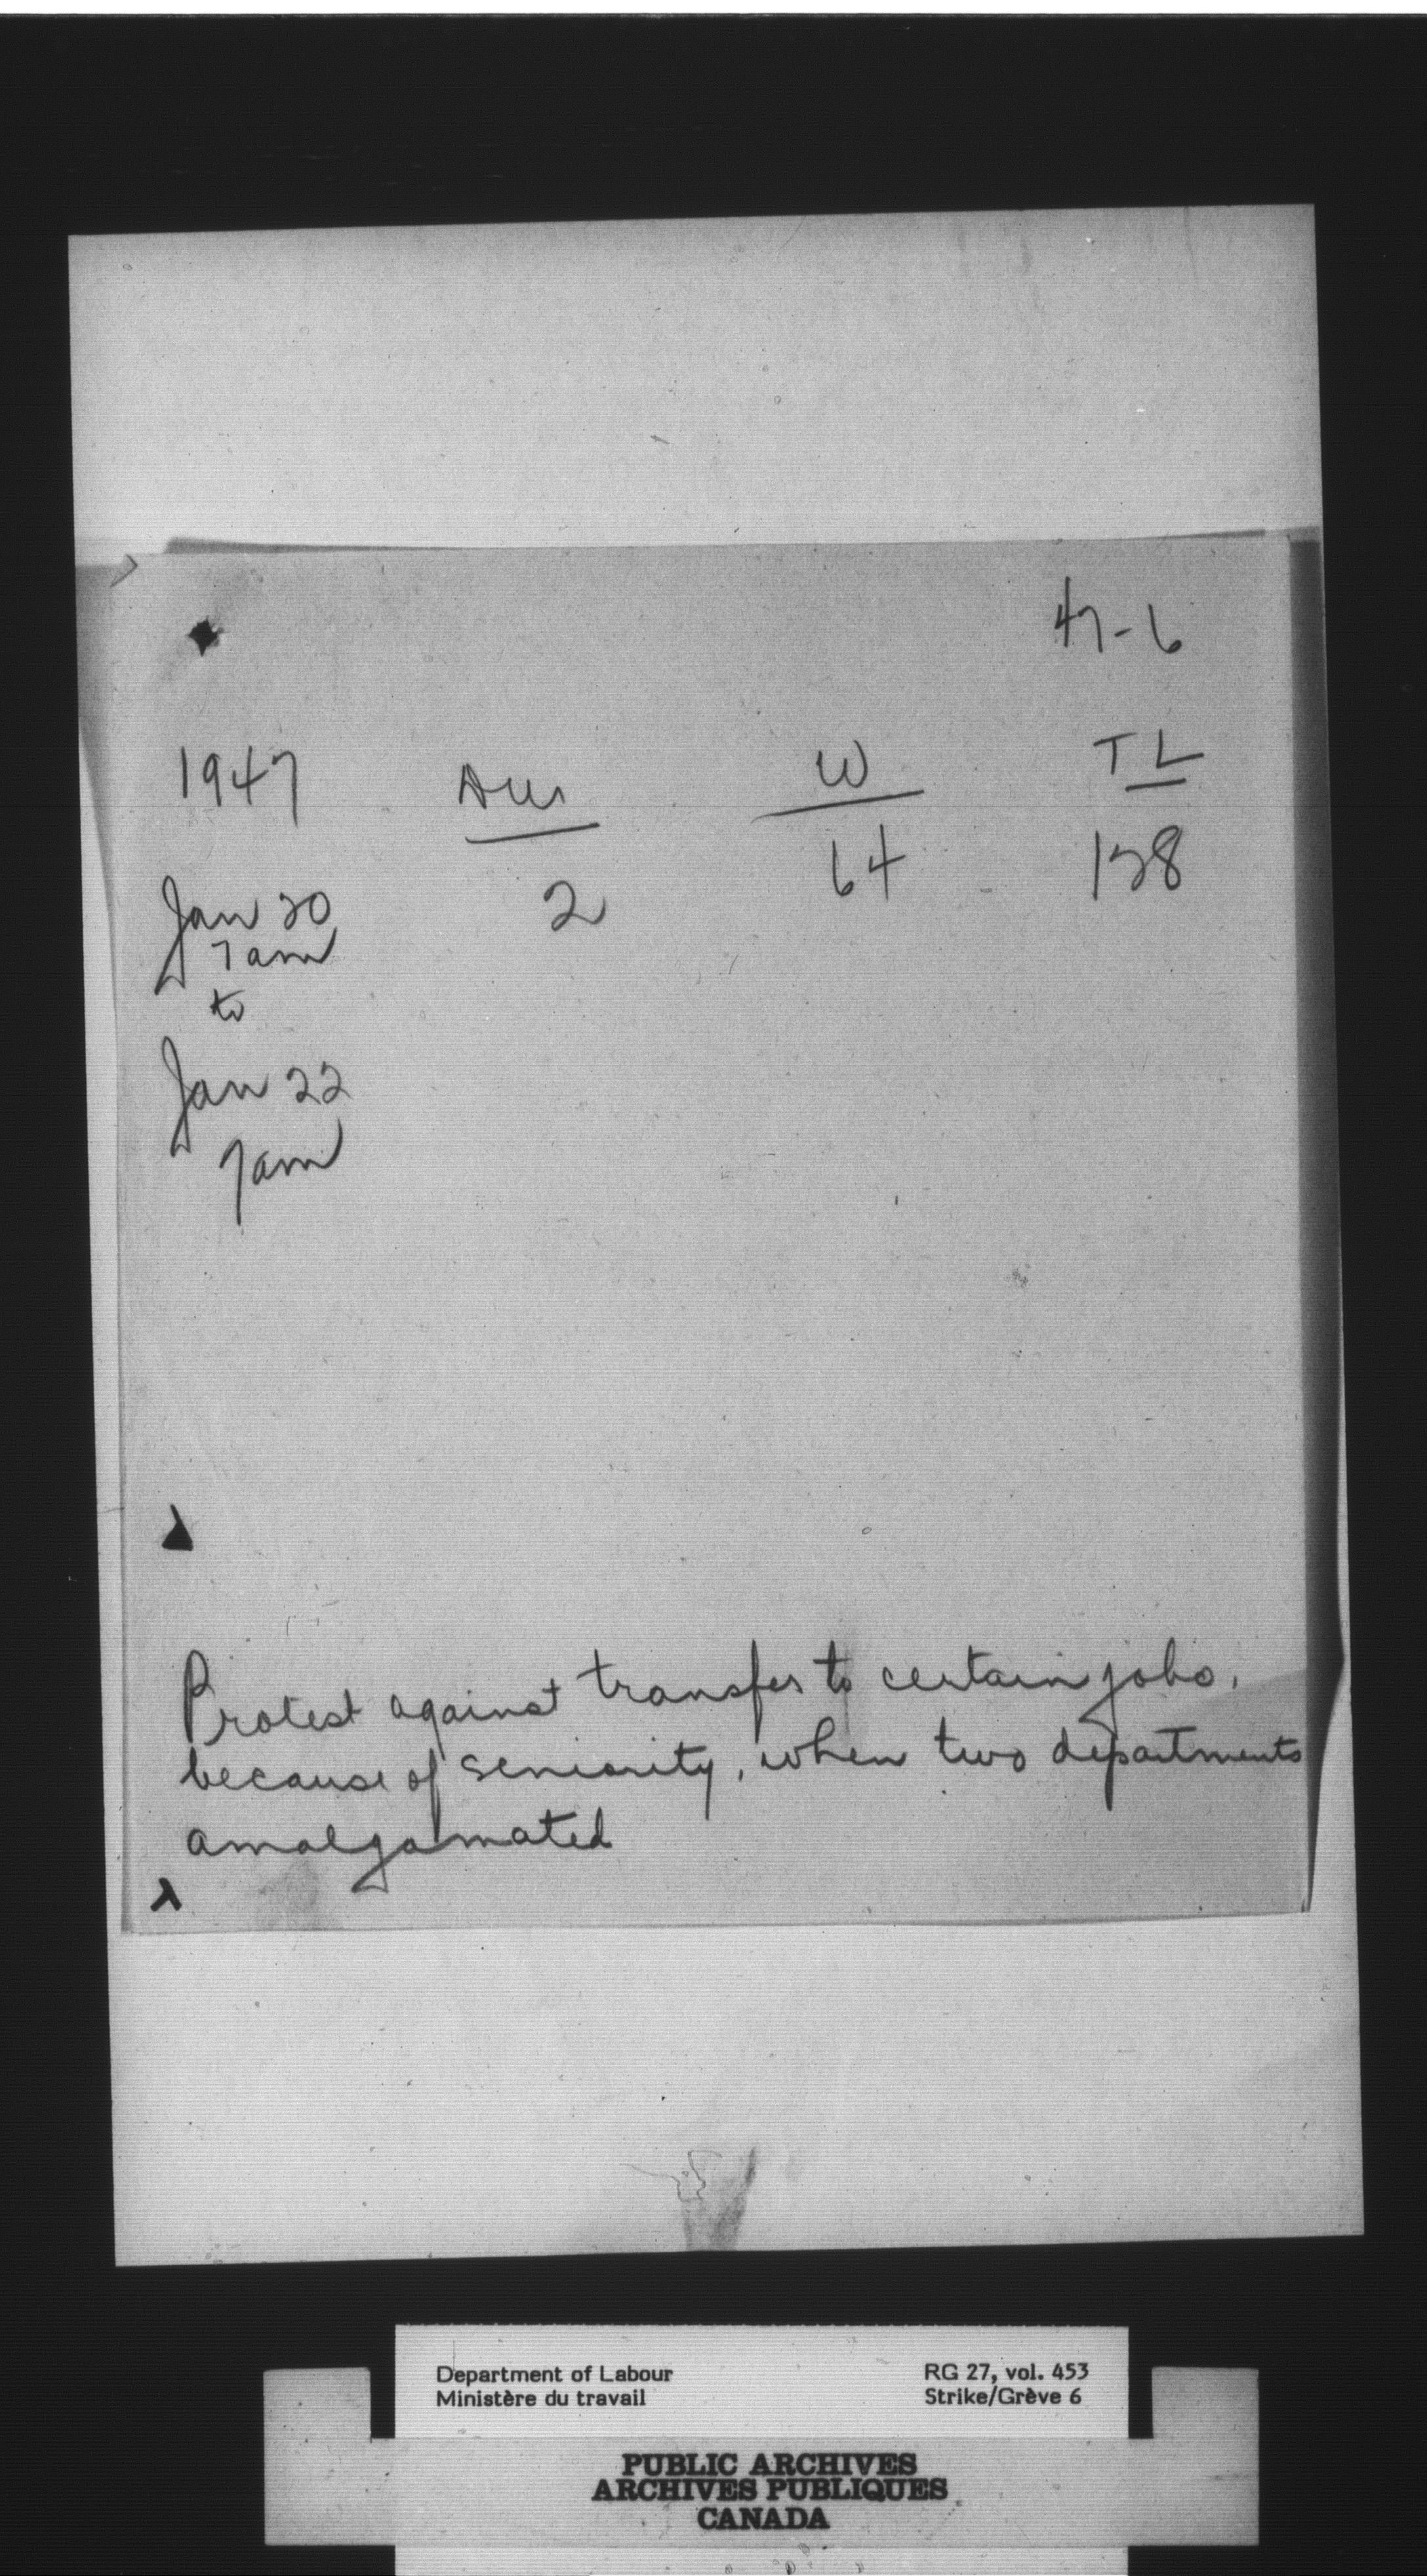 47-6
1947 Dur W TL
Jan 20 2 64 128
7am
to
Jan 22
7am
Protest against transfer to certain jobs,
because of seniority, when two departments
amalgamated
Department of Labour
Ministère du travail
RG 27, vol. 453
Strike/Grève 6
PUBLIC ARCHIVES
ARCHIVES PUBLIQUES
CANADA